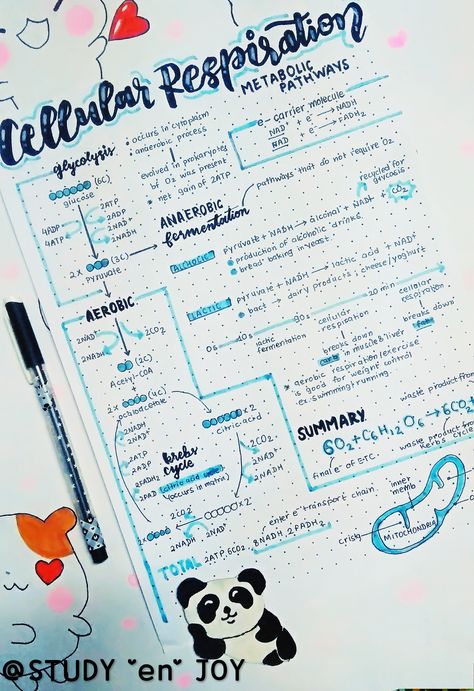 Cellular Respiration
METABOLIC
PATHWAYS
glycolysis
occurs in cytoplasm
anaerobic process
evolved in prokaryotes
bf O2 was present
net gain of 2ATP
e- carrier molecule
NAD+ + e- → NADH
e- → FADH2
(6C)
glucose
2ATP
2ADP
2NAD+
2NADH
4ADP
4ATP
2x (3C)
pyruvate
ANAEROBIC
fermentation
pathways that do not require O2
recycled for
glycolysis
pyruvate + NADH → alcohol + NAD+ + CO2
production of alcoholic drinks,
bread baking in yeast.
LACTIC
pyruvate + NADH → lactic acid + NAD+
bact → dairy products; cheese/yoghurt
AEROBIC
2NAD+
2NADH
2CO2
(2C)
Acetyl-COA
(4C)
oxaloacetate
0s
40s
20 min
lactic
fermentation
cellular
respiration
breaks down
carb in muscle/liver
cellular
respiration
breaks down
fats
aerobic respiration/exercise
is good for weight control
ex: swimming/running.
x2
citric acid
2NADH
2NAD+
2ATP
2ADP
2FADH2
2FAD
krebs
cycle
citric acid
2CO2
2NAD+
2NADH
2CO2
2x
x2
2NADH
2NAD+
SUMMARY
waste product from
6O2+C6H12O6→6CO2
final e- of ETC.
waste product from
krebs cycle
TOTAL
2ATP, 6CO2, 8NADH, 2FADH2
enter e- transport chain
inner
memb
crista
MITOCHONDRIA
@STUDY ˇenˇ JOY